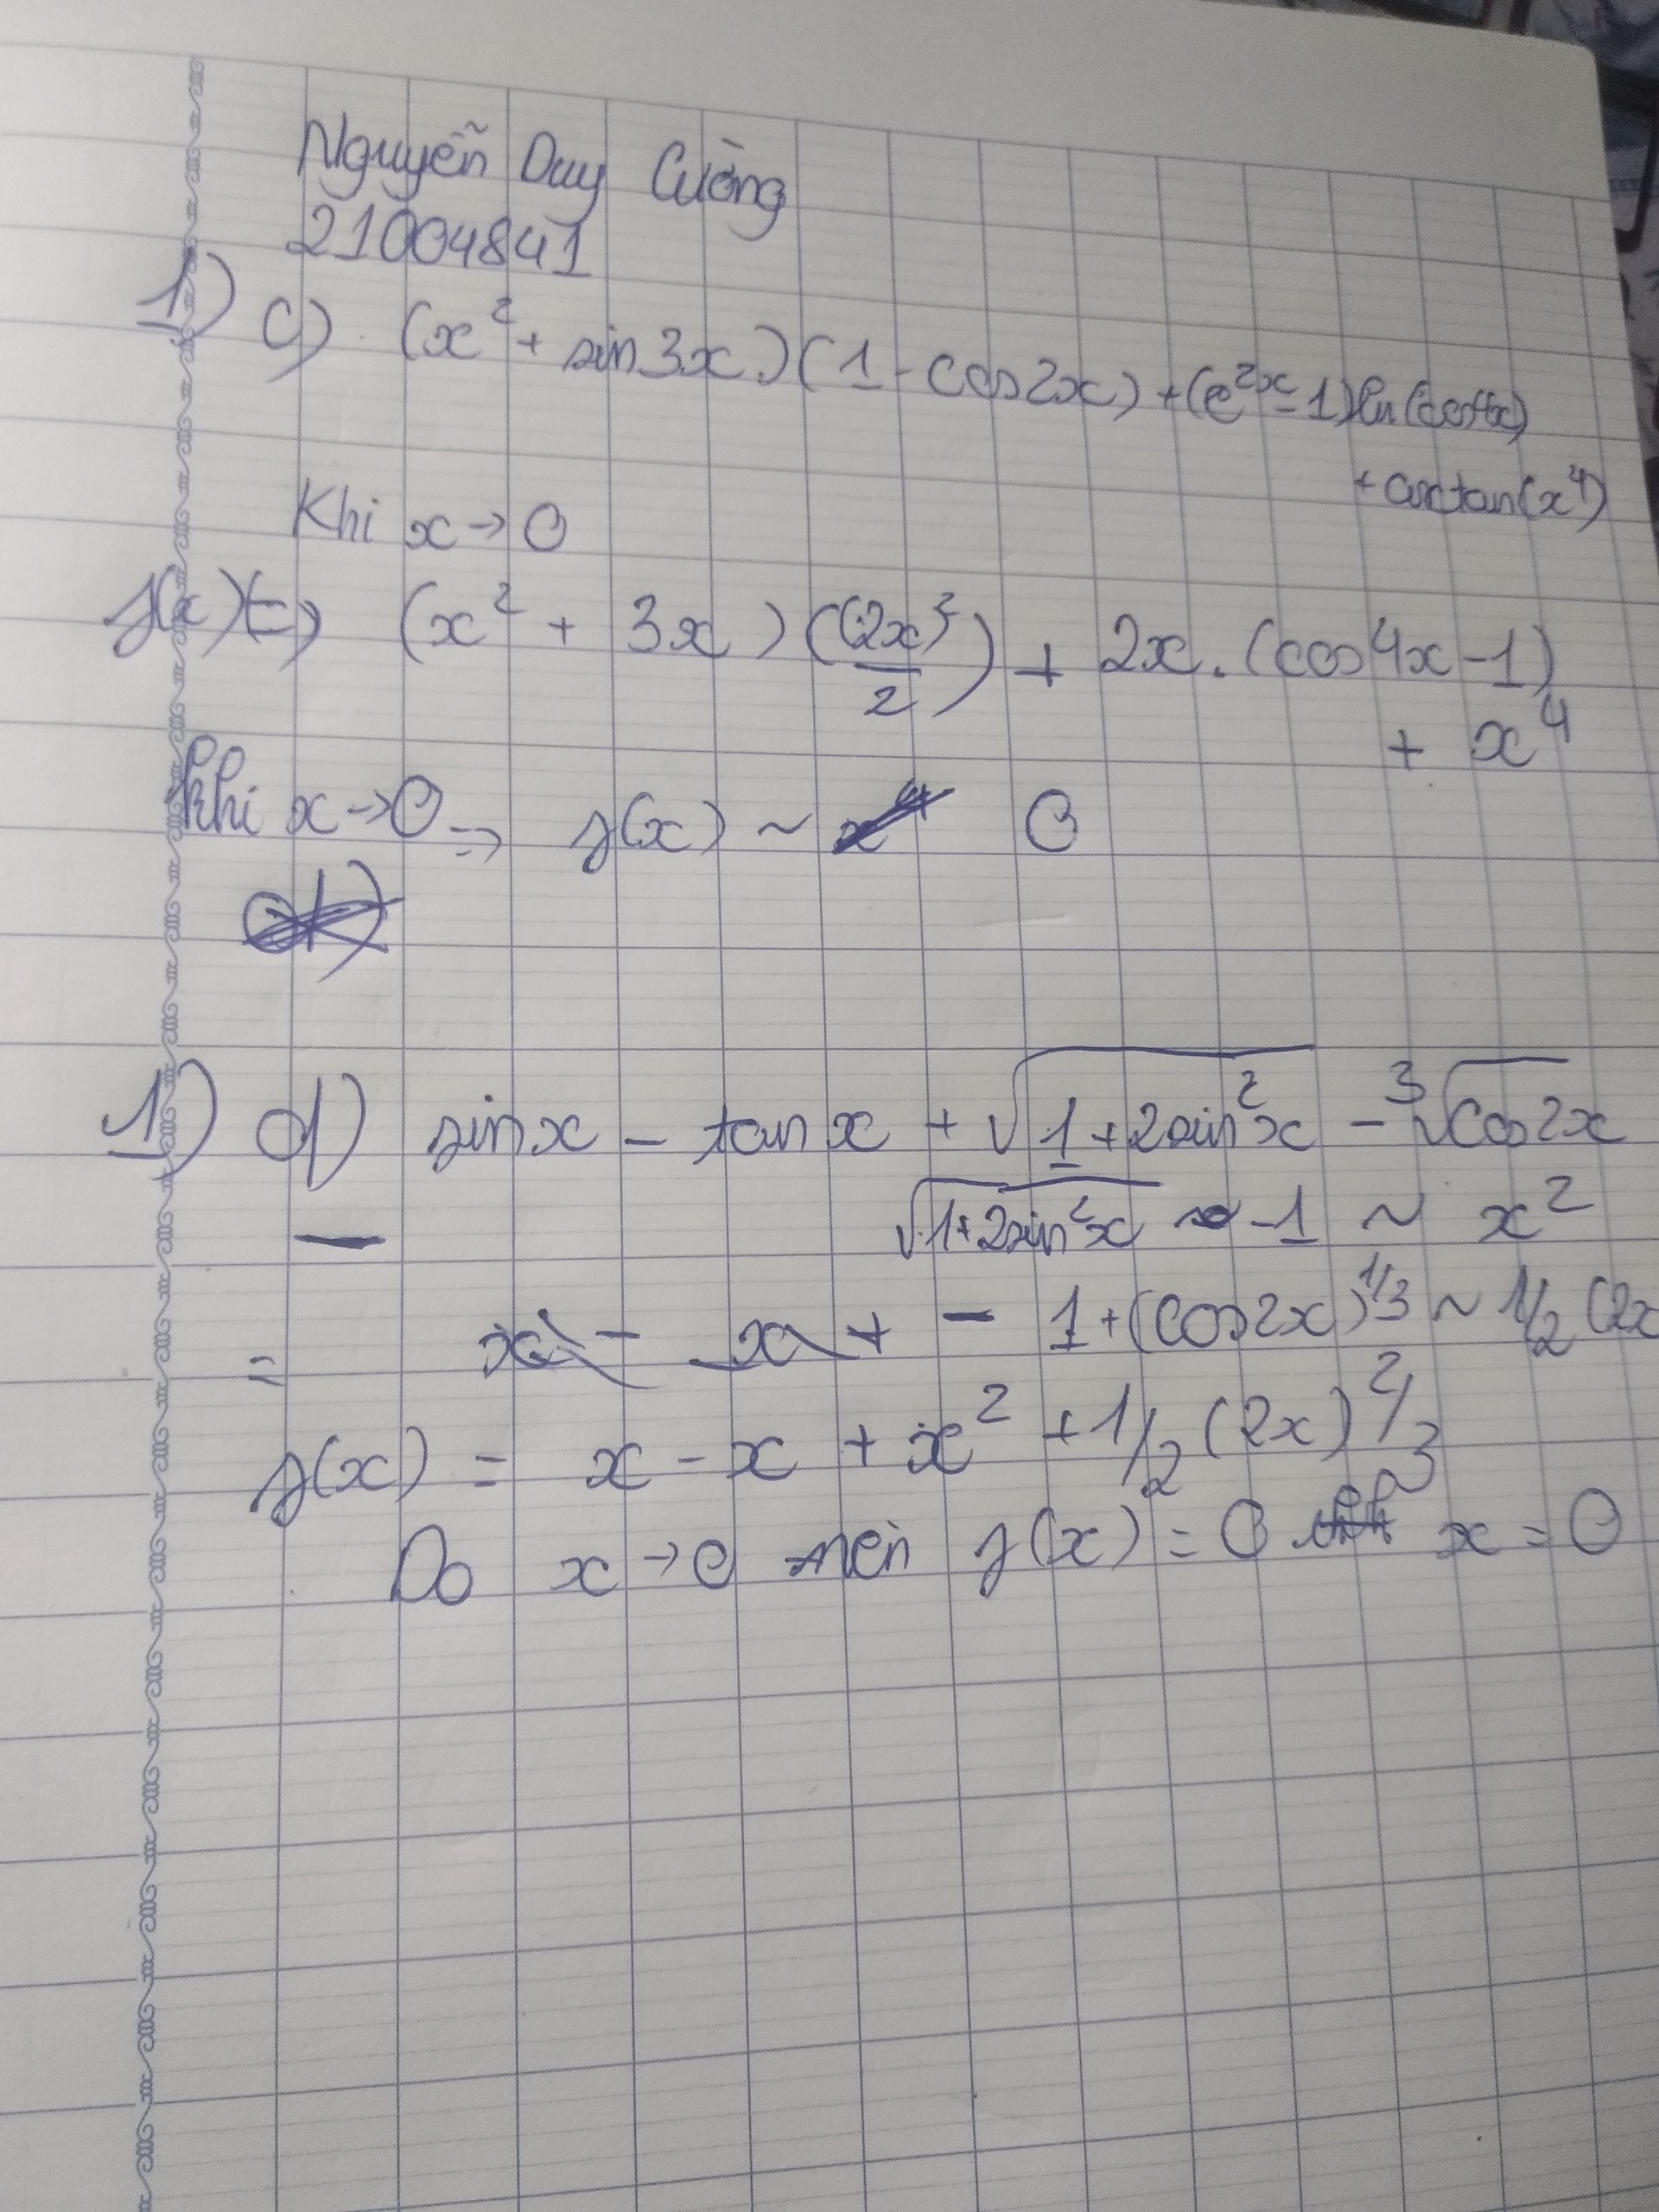 Nguyễn Duy Cường
21004841
1) c) (x² + sin3x)(1 - cos2x) + (e²ˣ - 1)ln(cos4x)
+ arctan(x⁴)
Khi x → 0
f(x) (=) (x² + 3x)((2x)²/2) + 2x.(cos4x - 1)
+ x⁴
khi x → 0 => f(x) ~ 0
1) d) sinx - tanx + √(1 + 2sin²x) - ³√cos2x
√(1+2sin²x) -1 ~ x²
= - 1 + (cos2x)^1/3 ~ 1/2 (2x
f(x) = x - x + x² + 1/2 (2x)^2/3
Do x → 0 nên f(x) = 0 x = 0